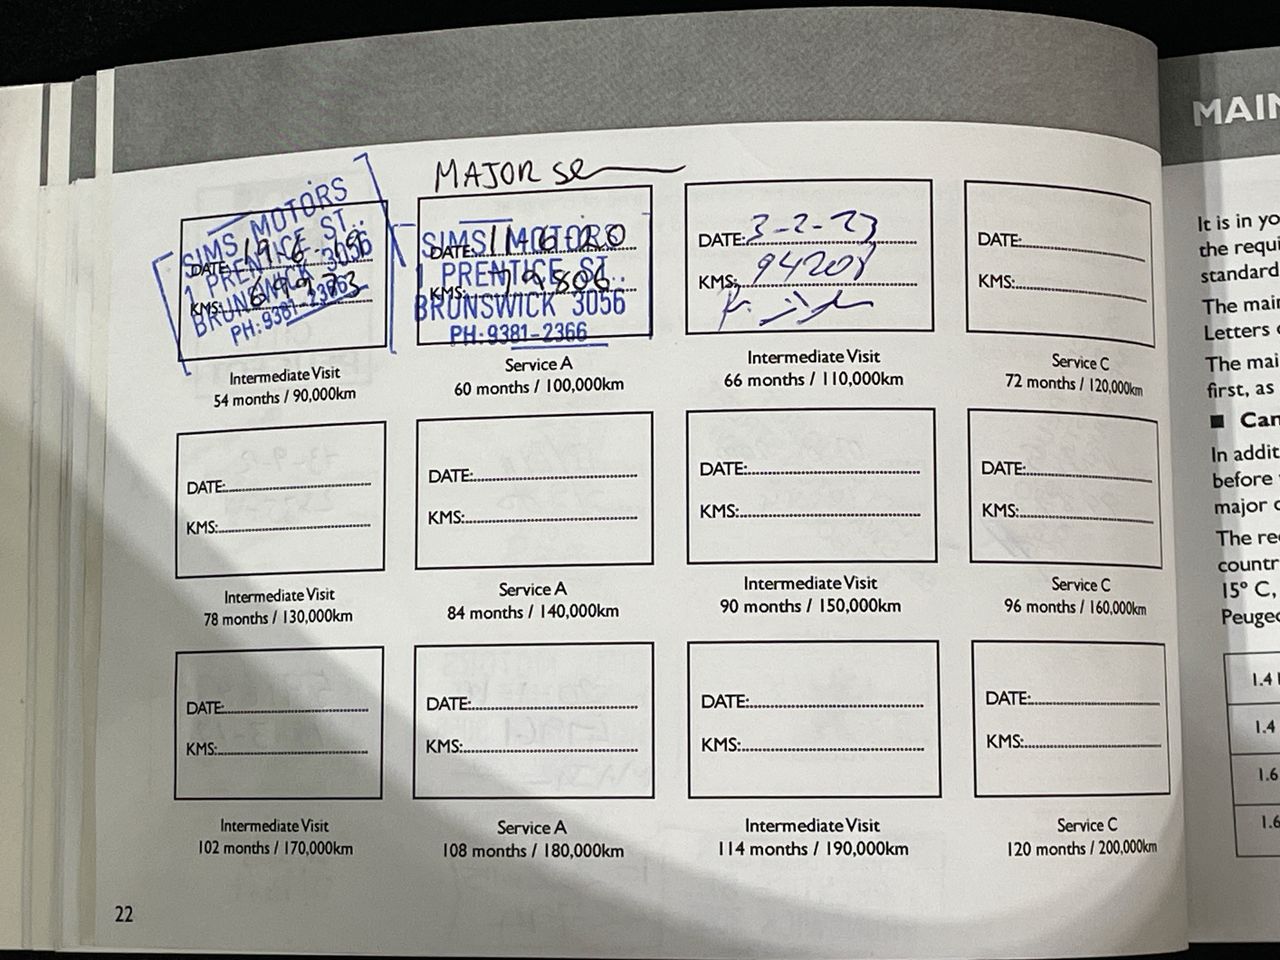 MAIN
MAJOR se
SIMS MOTORS
1 PRENTICE ST..
BRUNSWICK 3056
PH:9381-2366
DATE: 19-6-
KMS:
Intermediate Visit
54 months / 90,000km
SIMS MOTORS
1 PRENTICE ST..
BRUNSWICK 3056
PH:9381-2366
DATE: 11-6-20
KMS: 79806
Service A
60 months / 100,000km
DATE: 3-2-23
KMS: 94208
Intermediate Visit
66 months / 110,000km
DATE:
KMS:
Service C
72 months / 120,000km
DATE:
KMS:
Intermediate Visit
78 months / 130,000km
DATE:
KMS:
Service A
84 months / 140,000km
DATE:
KMS:
Intermediate Visit
90 months / 150,000km
DATE:
KMS:
Service C
96 months / 160,000km
DATE:
KMS:
Intermediate Visit
102 months / 170,000km
DATE:
KMS:
Service A
108 months / 180,000km
DATE:
KMS:
Intermediate Visit
114 months / 190,000km
DATE:
KMS:
Service C
120 months / 200,000km
22
It is in yo
the requi
standard
The main
Letters
The mai
first, as
■ Can
In addit
before
major
The re
countr
15° C,
Peuge
1.4
1.4
1.6
1.6